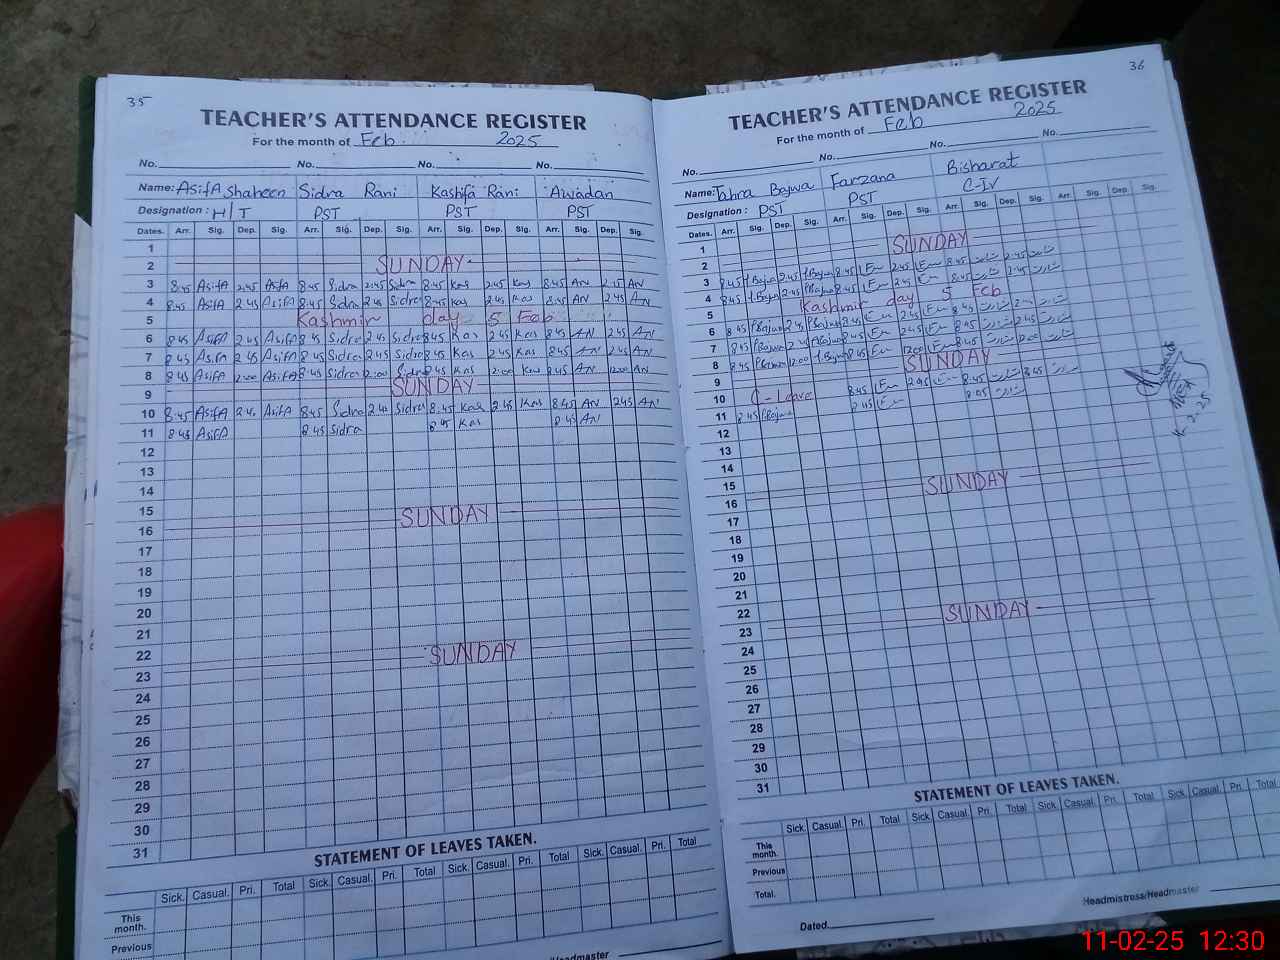 35
TEACHER'S ATTENDANCE REGISTER
For the month of Feb 2025
No. No. No. No.
Name: Asifa Shaheen Sidra Rani Kashifa Rani Awadan
Designation: H/T PST PST PST
Dates. Arr. Sig. Dep. Sig. Arr. Sig. Dep. Sig. Arr. Sig. Dep. Sig. Arr. Sig. Dep. Sig.
1
2 SUNDAY
3 8:45 Asifa 2:45 Asifa 8:45 Sidra 2:45 Sidra 8:45 Kas 2:45 Kas 8:45 AN 2:45 AN
4 8:45 Asifa 2:45 Asifa 8:45 Sidra 2:45 Sidra 8:45 Kas 2:45 Kas 8:45 AN 2:45 AN
5 Kashmir day 5 Feb
6 8:45 Asifa 2:45 Asifa 8:45 Sidra 2:45 Sidra 8:45 Kas 2:45 Kas 8:45 AN 2:45 AN
7 8:45 Asifa 2:45 Asifa 8:45 Sidra 2:45 Sidra 8:45 Kas 2:45 Kas 8:45 AN 2:45 AN
8 8:45 Asifa 2:00 Asifa 8:45 Sidra 2:00 Sidra 8:45 Kas 2:00 Kas 8:45 AN 12:00 AN
9 SUNDAY
10 8:45 Asifa 2:4. Asifa 8:45 Sidra 2:45 Sidra 8:45 Kas 2:45 Kas 8:45 AN 2:45 AN
11 8:45 Asifa 8:45 Sidra 8:45 Kas 8:45 AN
12
13
14
15
16 SUNDAY
17
18
19
20
21
22 SUNDAY
23
24
25
26
27
28
29
30
31
STATEMENT OF LEAVES TAKEN.
Sick. Casual. Pri. Total Sick. Casual. Pri. Total Sick. Casual. Pri. Total Sick. Casual. Pri. Total
This month.
Previous
/Headmaster
36
TEACHER'S ATTENDANCE REGISTER
For the month of Feb 2025
No. No. No. No.
Name: Tahra Bajwa Farzana Bisharat
Designation: PST PST C-IV
Dates. Arr. Sig. Dep. Sig. Arr. Sig. Dep. Sig. Arr. Sig. Dep. Sig. Arr. Sig. Dep. Sig.
1
2 SUNDAY
3 8:45 Bajwa 2:45 Bajwa 8:45 2:45 8:45 2:45
4 8:45 Bajwa 2:45 Bajwa 8:45 2:45 8:45 2:45
5 Kashmir day 5 Feb
6 8:45 Bajwa 2:45 Bajwa 8:45 2:45 8:45
7 8:45 Bajwa Bajwa 8:45 2:45 8:45 2:45
8 8:45 Bajwa 12:00 Bajwa 8:45 12:00 8:45 2:00
9 SUNDAY
10 C-Leave 8:45 2:45 8:45
11 8:45 Bajwa 8:45 8:45
12
13
14
15 SUNDAY
16
17
18
19
20
21
22 SUNDAY
23
24
25
26
27
28
29
30
31
STATEMENT OF LEAVES TAKEN.
Sick. Casual. Pri. Total Sick. Casual. Pri. Total Sick. Casual. Pri. Total Sick. Casual. Pri. Total
This month.
Previous
Total.
Headmistress/Headmaster
Dated.
11-02-25 12:30